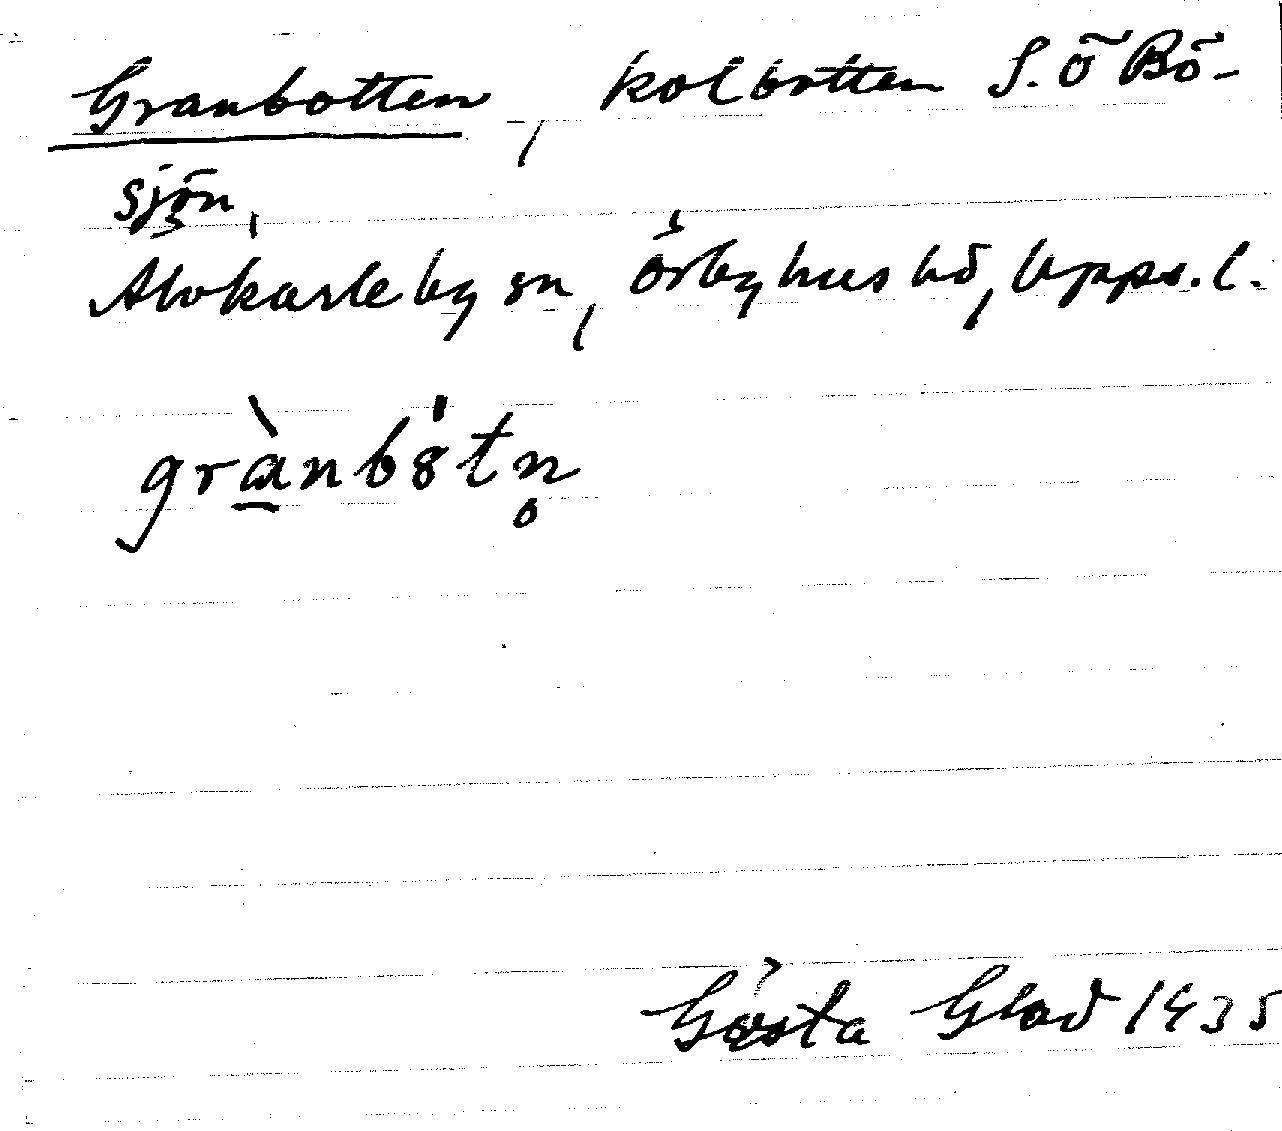 Granbotten, kolbotten S. ö Bö-
sjön,
Älvkarleby sn, Örbyhus hd, Upps. l.
grànbȣ́tn̥
Gösta Glad 1935